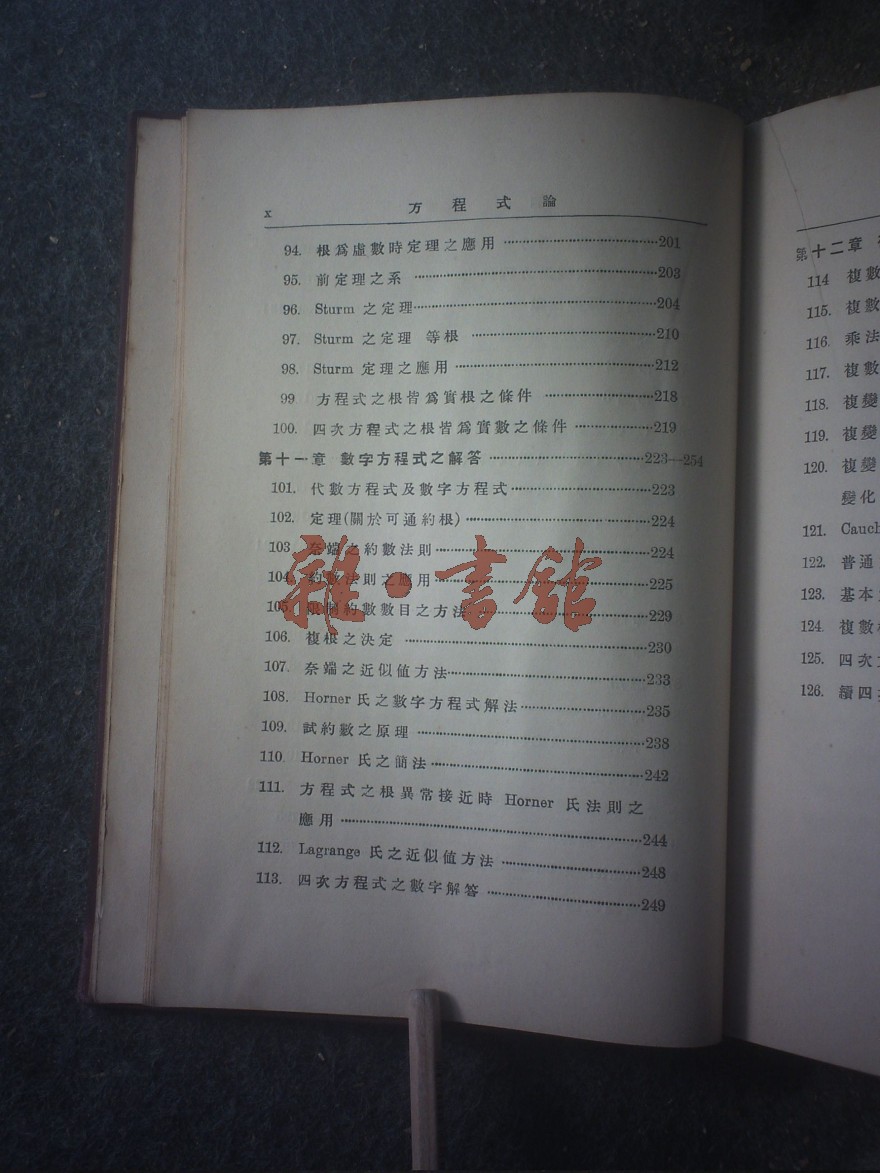 x 方程式論
94. 根爲虛數時定理之應用 201
95. 前定理之系 203
96. Sturm 之定理 204
97. Sturm 之定理 等根 210
98. Sturm 定理之應用 212
99 方程式之根皆爲實根之條件 218
100. 四次方程式之根皆爲實數之條件 219
第十一章 數字方程式之解答 223—254
101. 代數方程式及數字方程式 223
102. 定理(關於可通約根) 224
103. 奈端之約數法則 224
104. 約數法則之應用 225
105. 限制約數數目之方法 229
106. 複根之決定 230
107. 奈端之近似値方法 233
108. Horner 氏之數字方程式解法 235
109. 試約數之原理 238
110. Horner 氏之簡法 242
111. 方程式之根異常接近時 Horner 氏法則之
應用 244
112. Lagrange 氏之近似値方法 248
113. 四次方程式之數字解答 249
雜·書館
第十二章
114 複數
115. 複數
116. 乘法
117. 複數
118. 複變
119. 複變
120. 複變
變化
121. Cauch
122. 普通
123. 基本
124. 複數
125. 四次
126. 續四